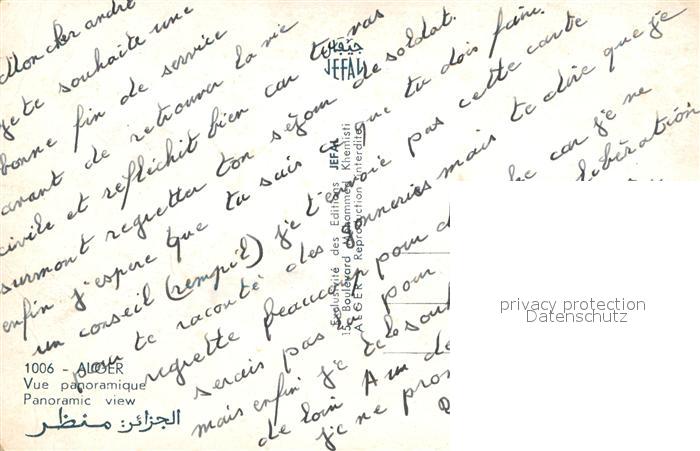 Mon cher andré
je te souhaite une
bonne fin de service
avant de retrouver la vie
civile et refléchit bien car tu vas
surmont regretter ton séjour de soldat.
enfin j'espère que tu sais ce que tu dois faire.
un conseil (rempil) je t'envoie pas cette carte
pour te raconté des conneries mais te dire que je
regrette beaucoup pour car je ne
serais pas pour libération
mais enfin je te le sou
de loin A un de
je ne pro
جيفال
JEFAL
Exclusivité des Editions JEFAL
15, Boulevard Mohammed Khemisti
ALGER Reproduction interdite
1006 - ALGER
Vue panoramique
Panoramic view
الجزائر: منظر
privacy protection
Datenschutz